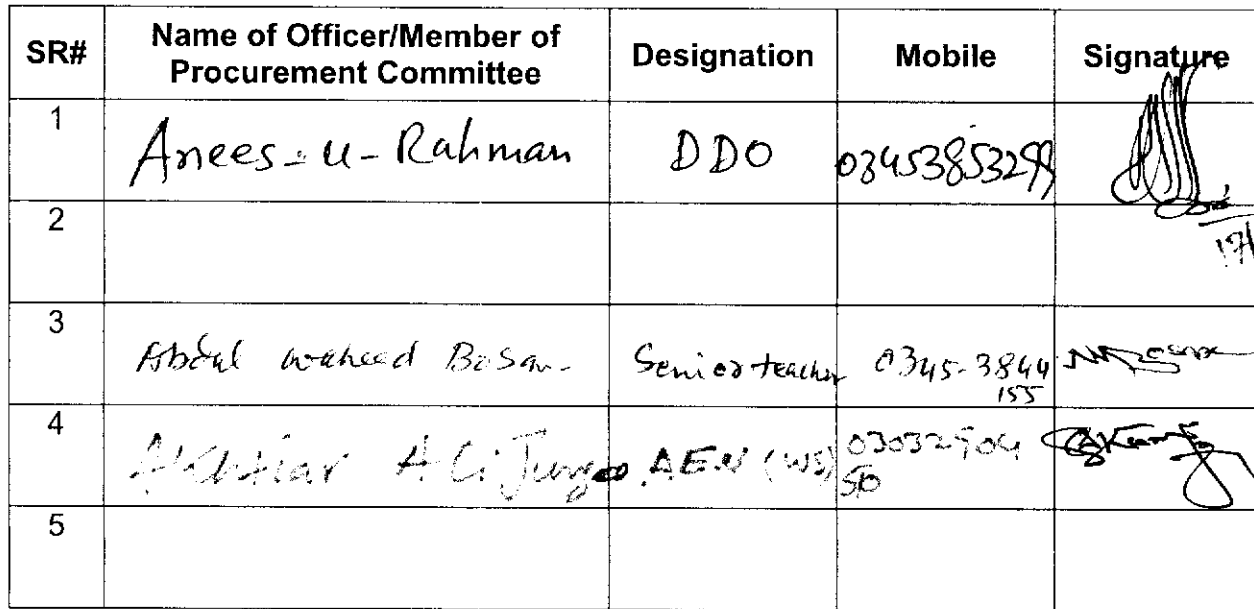 SR# Name of Officer/Member of Procurement Committee Designation Mobile Signature
1 Anees-u-Rahman DDO 03453853299
2
3 Abdul waheed Bosan Senior teacher 0345-3844
155
4 Akhtiar Ali AEN (WS) 03032904
50
5